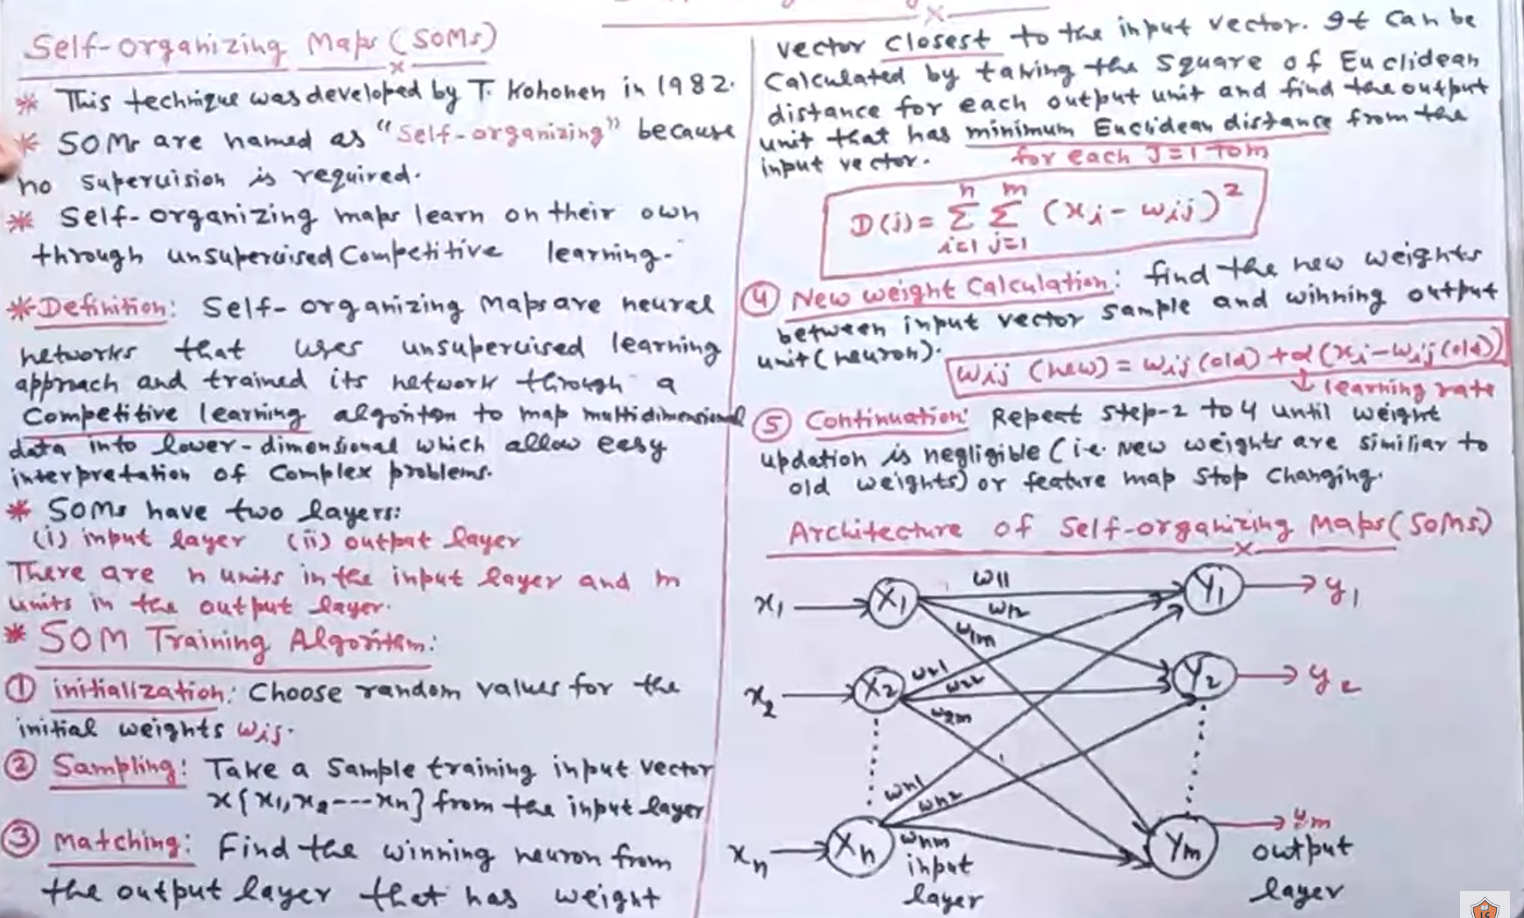 Self-organizing Maps (SOMs)
* This technique was developed by T. Kohonen in 1982.
* SOMs are named as "Self-organizing" because
no supervision is required.
* Self-organizing maps learn on their own
through unsupervised Competitive learning.
* Definition: Self-organizing Maps are neural
networks that uses unsupervised learning
approach and trained its network through a
Competitive learning algoritm to map multidimensional
data into lower-dimensional which allow easy
interpretation of Complex problems.
* SOMs have two layers:
(i) input layer (ii) output layer
There are n units in the input layer and m
units in the output layer.
* SOM Training Algoritm:
① initialization: Choose random values for the
initial weights wij.
② Sampling: Take a Sample training input vector
x{x1,x2---xn} from the input layer
③ Matching: Find the winning neuron from
the output layer that has weight
vector closest to the input vector. It can be
Calculated by taking the square of Euclidean
distance for each output unit and find the output
unit that has minimum Euclidean distance from the
input vector. for each J=1 to m
D(j)= n∑i=1 m∑j=1 (xi-wij)²
④ New weight Calculation: find the new weights
between input vector sample and winning output
unit (neuron).
wij (new) = wij (old) + α(xi-wij(old))
↓ learning rate
⑤ Continuation: Repeat step-2 to 4 until weight
updation is negligible (i.e. New weights are similiar to
old weights) or feature map stop changing.
Architecture of Self-organizing Maps (SOMs)
x1 X1 w11 Y1 y1
w12
w1m
x2 X2 w21 Y2 y2
w22
w2m
wn1
wn2
xn Xn wnm Ym ym
input output
layer layer